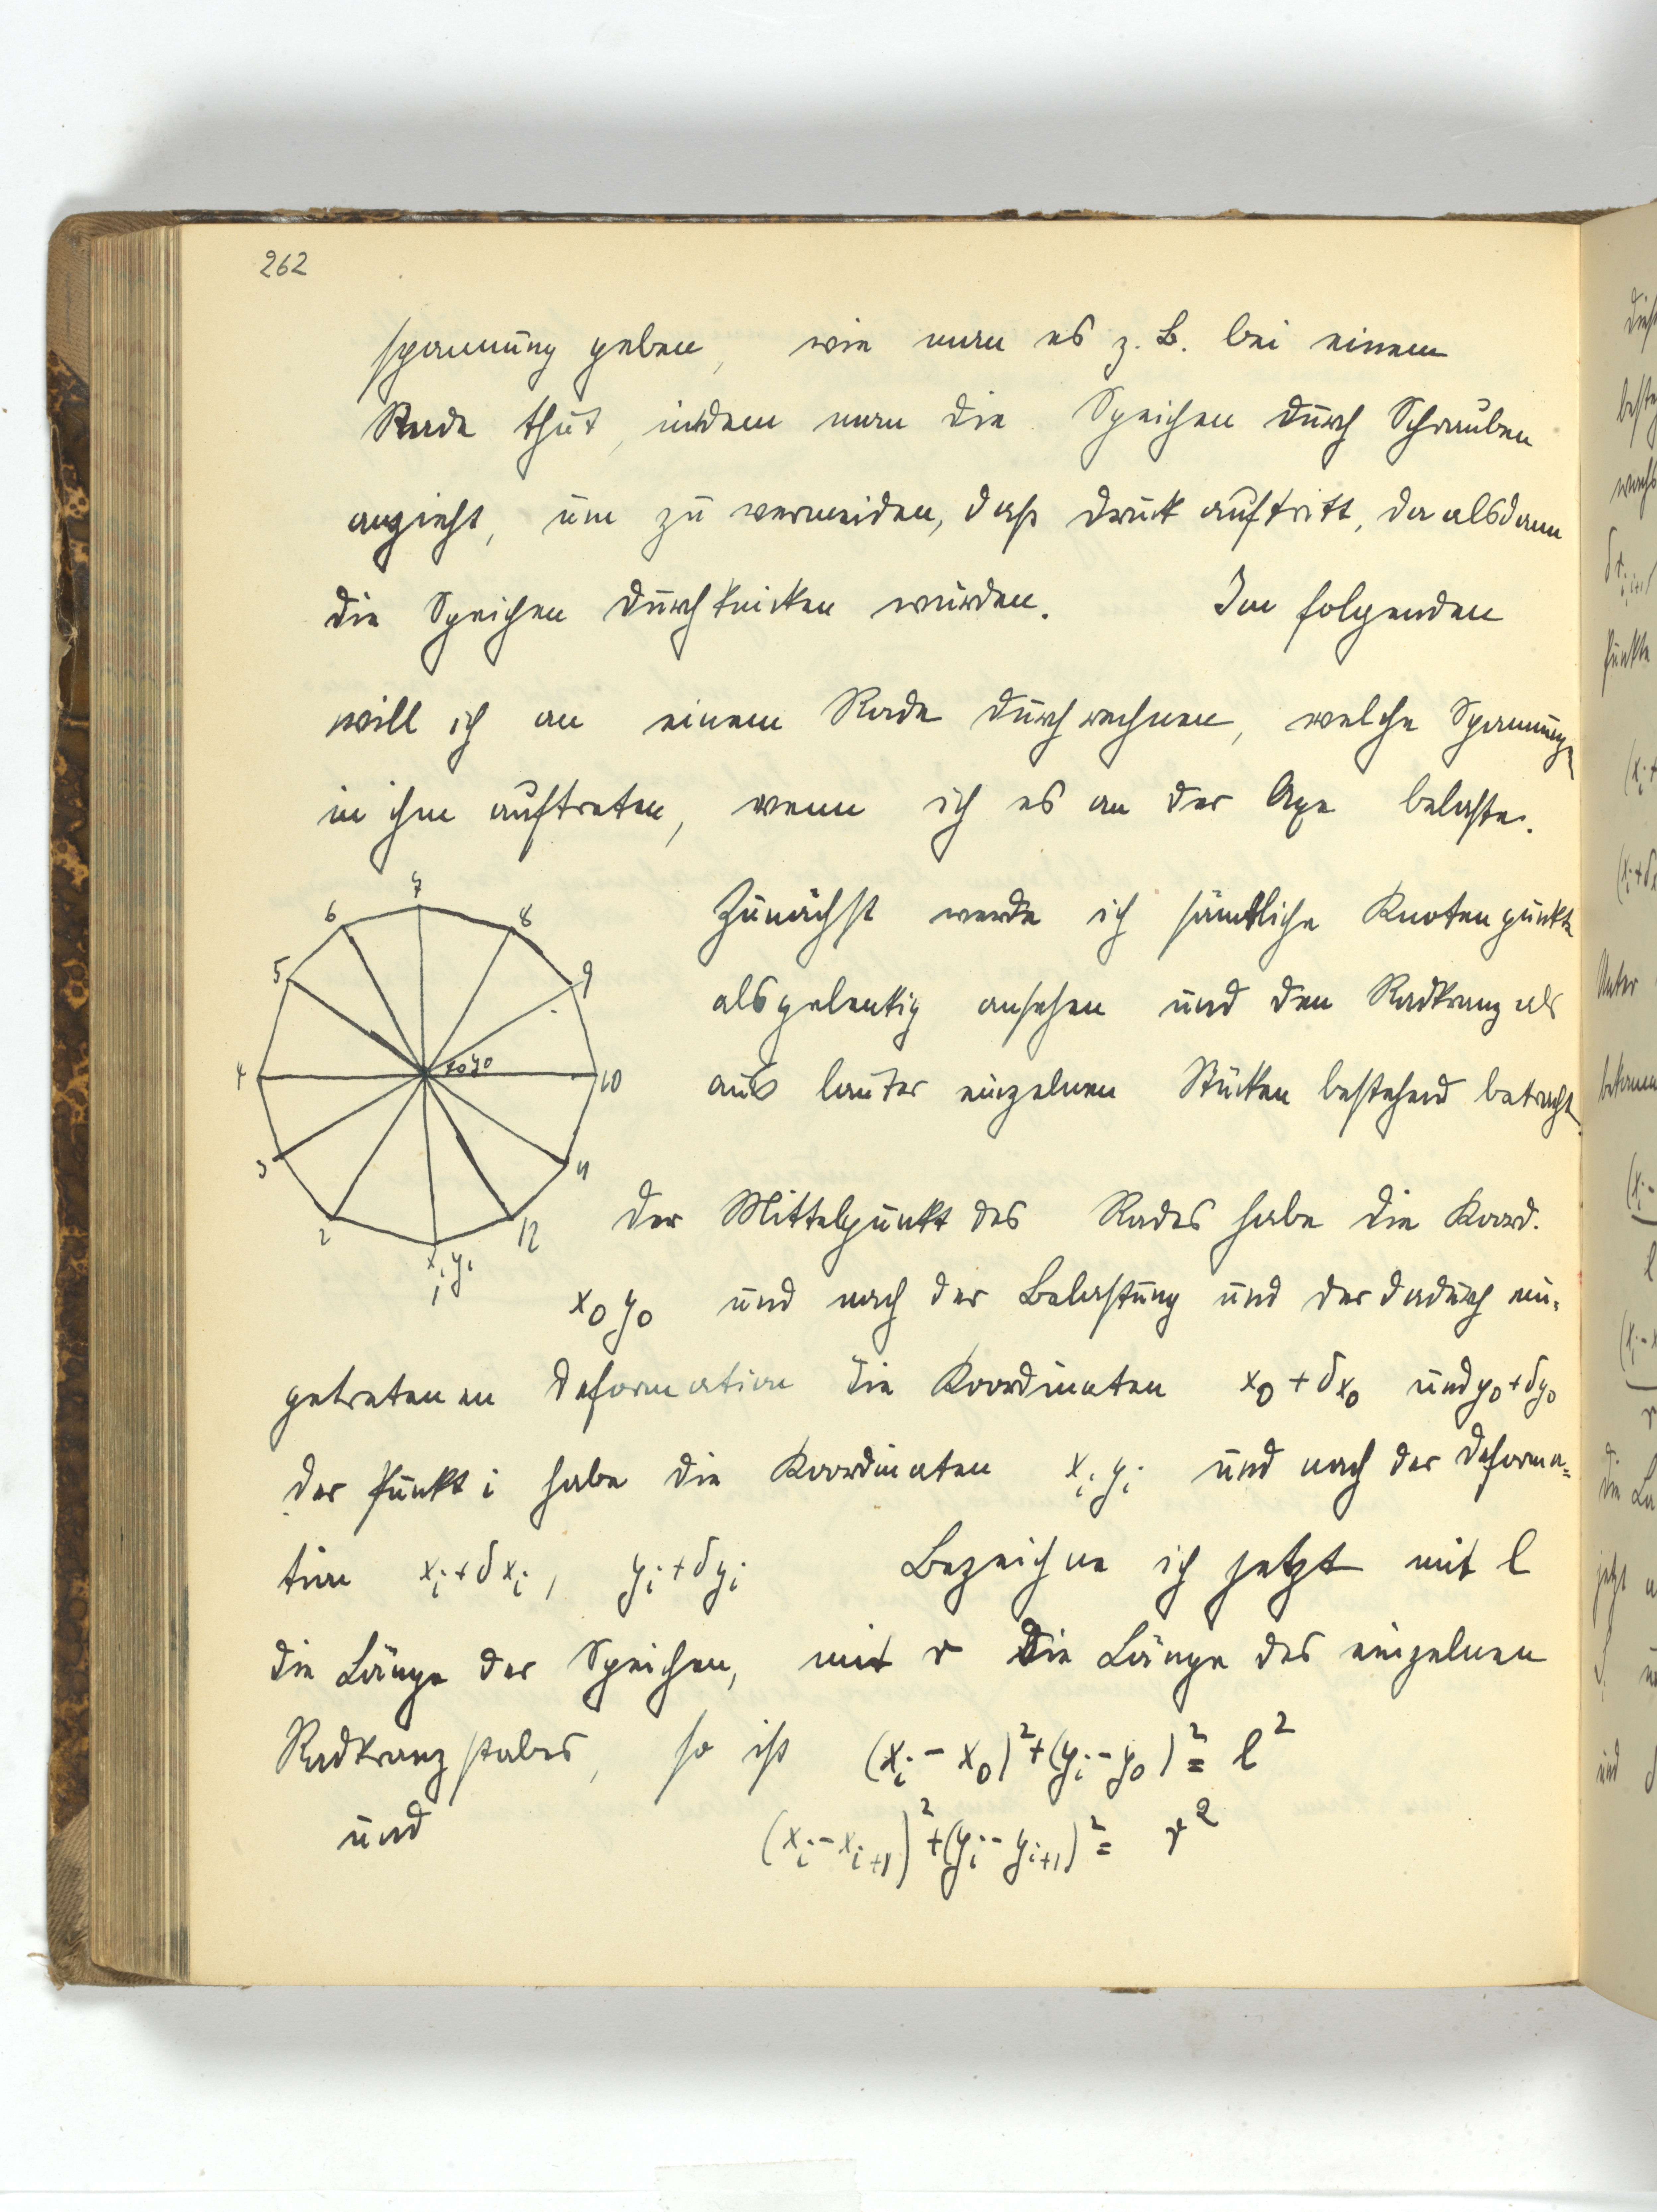 262
spannung geben, wie man es z. B. bei einem
Rade thut, indem man die Speichen durch Schrauben
anzieht, um zu vermeiden, daß Druck auftritt, da alsdann
die Speichen durchknicken würden. Im folgenden
will ich an einem Rade durchrechnen, welche Spannungen
in ihm auftreten, wenn ich es an der Axe belaste.
Zunächst werde ich sämtliche Knotenpunkte
als gelenkig ansehen und den Radkranz als
aus lauter einzelnen Stücken bestehend betracht.
7
6 8
5 9
4 x0y0 10
3 11
2 12
xi yi
1
Der Mittelpunkt des Rades habe die Koord.
x₀ y₀ und nach der Belastung und der dadurch ein-
getretenen Deformation die Koordinaten x₀ + δx₀ und y₀ + δy₀
Der Punkt i habe die Koordinaten xᵢ yᵢ und nach der Deforma=
tion xᵢ + δxᵢ, yᵢ + δyᵢ Bezeichne ich jetzt mit l
die Länge der Speichen, mit r die Länge des einzelnen
Radkranzstabes, so ist (xᵢ - x₀)² + (yᵢ - y₀)² = l²
und (xᵢ - xᵢ₊₁)² + (yᵢ - yᵢ₊₁)² = r²